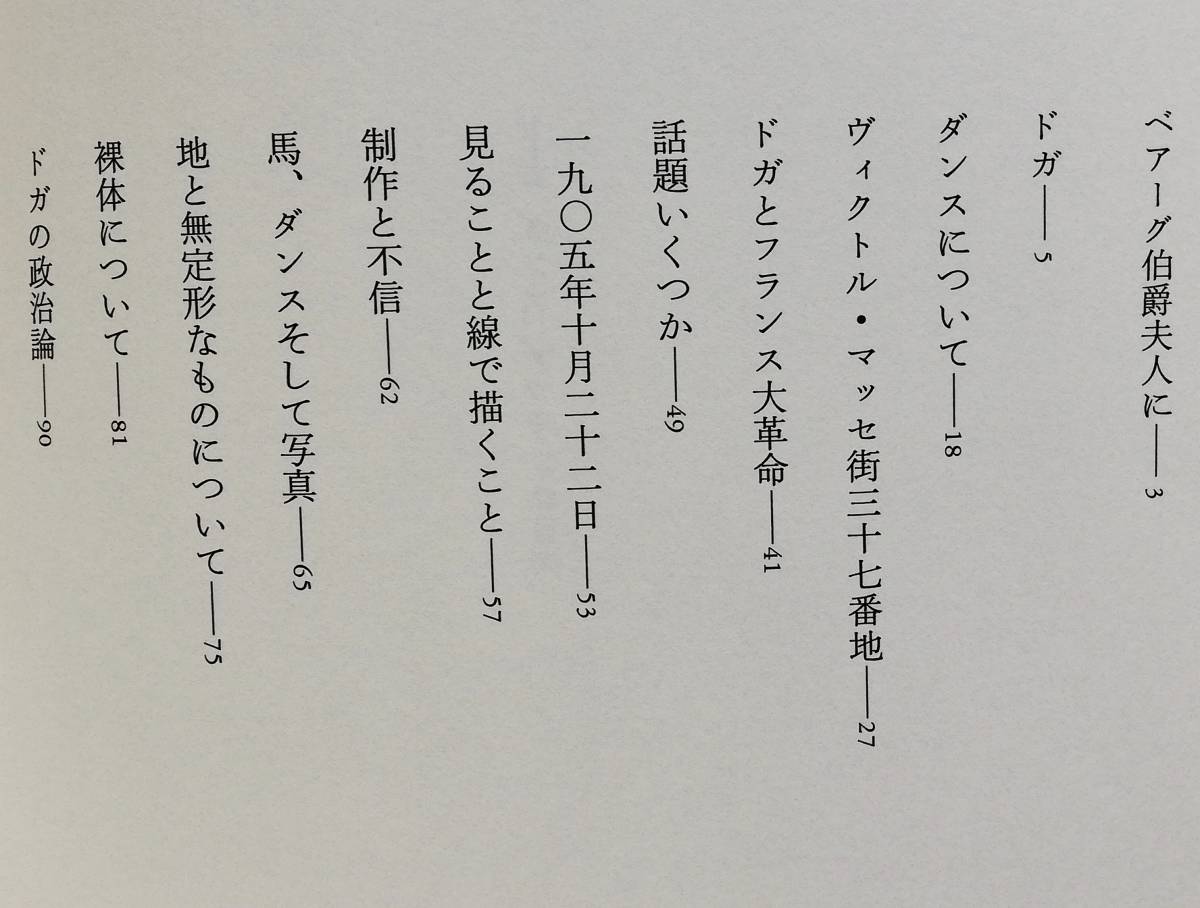 ベアーグ伯爵夫人に——3
ドガ——5
ダンスについて——18
ヴィクトル・マッセ街三十七番地——27
ドガとフランス大革命——41
話題いくつか——49
一九〇五年十月二十二日——53
見ることと線で描くこと——57
制作と不信——62
馬、ダンスそして写真——65
地と無定形なものについて——75
裸体について——81
ドガの政治論——90